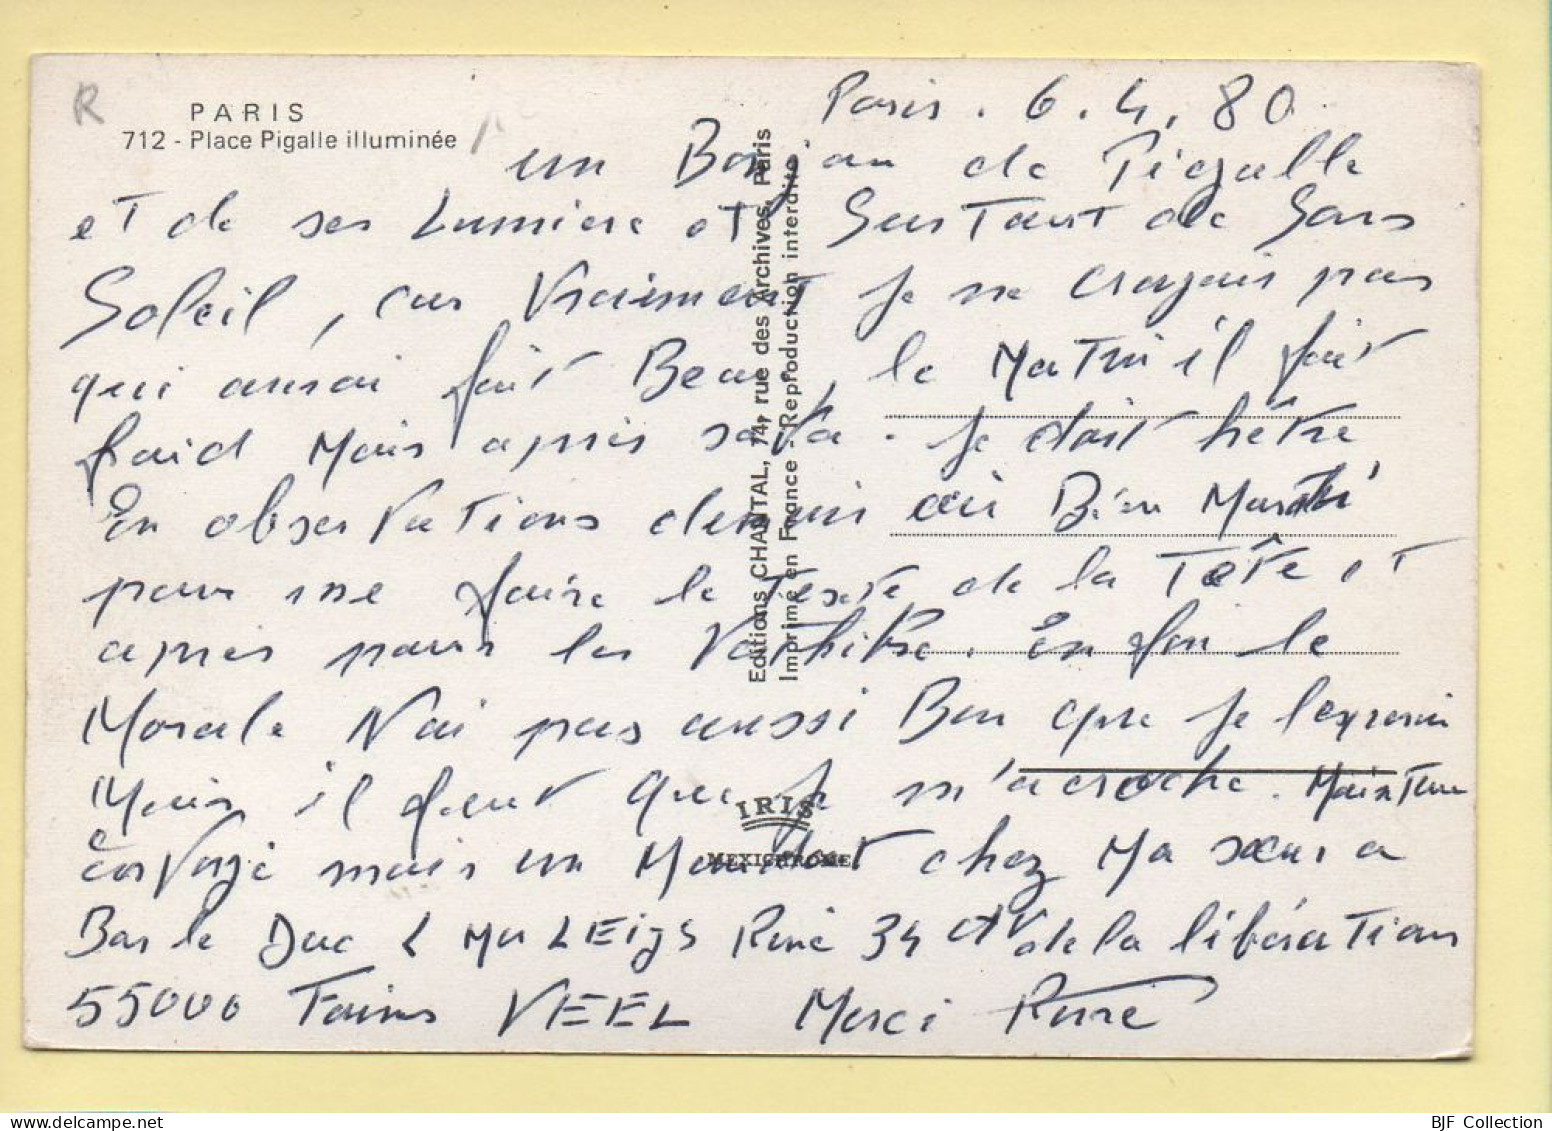 R
PARIS
712 - Place Pigalle illuminée
Paris . 6. 4. 80.
un Bonjou de Pigalle
et de ses Lumiere et Surtout de Sons
Soleil, car Vraiment je ne croyais pas
qui aurai fait Beau, le Matin il fait
froid Mais apres sa va. je doit hêtre
En observations demain ou Bien Mardi
pour me faire le texte de la Tête et
apres pour les . En fou le
Morale N'ai pas aussi Bon que je l'esperai
Mais il faut que je m'acroche. Maintena
mais un Mandat chez Ma sœur a
Bar le Duc René 34 de la libération
55000 Fains VEEL Merci René
Editions CHANTAL, 74, rue des Archives, Paris
Imprimé en France - Reproduction interdite
IRIS
MEXICHROME
BJF Collection